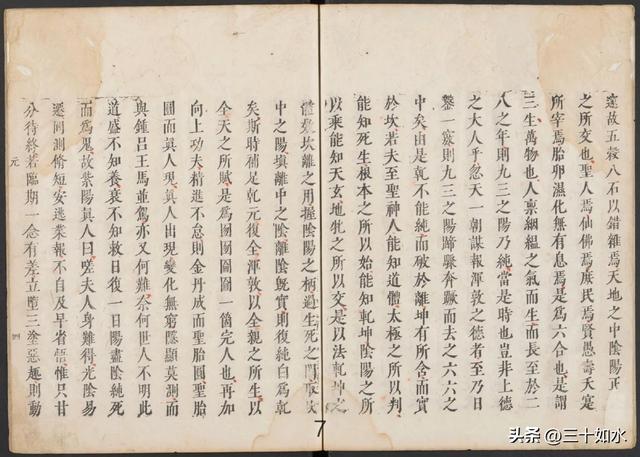 故五穀八石以錯雜焉天地之中陰陽正
之所交也聖人焉仙佛焉庶民焉賢愚壽夭寔
所宰焉胎卵濕化有息焉是爲六合也是謂
三生萬物也人禀絪縕之氣而生而長至於二
八之年則九三之陽乃純當是時也豈非上德
之大人乎忽天一朝謀報渾敦之德者至乃日
鑿一竅則九三之陽蹄驟奔蹶而去之六六之
中矣由是乾不能純而破於離坤有所含而實
於坎若夫至聖神人能知道體太極之所以判
能知死生根本之所以始能知乾坤陰陽之所
以乘能知天玄地牝之所以交是以法乾坤之
體效坎離之用握陰陽之柄過生死之關取坎
中之陽塡離中之陰離陰旣實則復純白爲乾
矣斯時補足乾元復全渾敦以全親之所生以
全天之所賦是爲囫囫圇圇一箇完人也再加
向上功夫精進不怠則金丹成而聖胎圓聖胎
圓而眞人現眞人出現變化無窮隱顯莫測而
與鍾呂王馬並駕亦又何難奈何世人不明此
道盛不知養衰不知救日復一日陽盡陰純死
而爲鬼故紫陽眞人曰嗟夫人身難得光陰易
遷罔測脩短安逃業報不自及早省悟惟只甘
分待終若臨期一念有差立墮三塗惡趣則動
元
四
7
头条 @三十如水